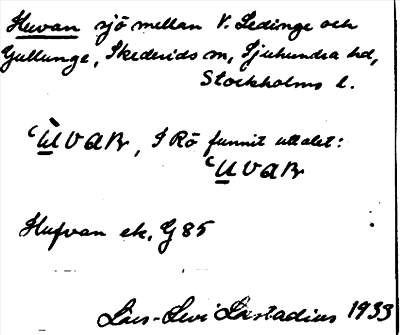 Huvan sjö mellan V. Ledinge och
Gullunge, Skederids sn, Sjuhundra hd,
Stockholms l.
ʿɯ̀vaʀ, I Rö funnit uttalet:
ʿuvaʀ
Hufvan ek, G 85
Lars-Levi Læstadius 1933